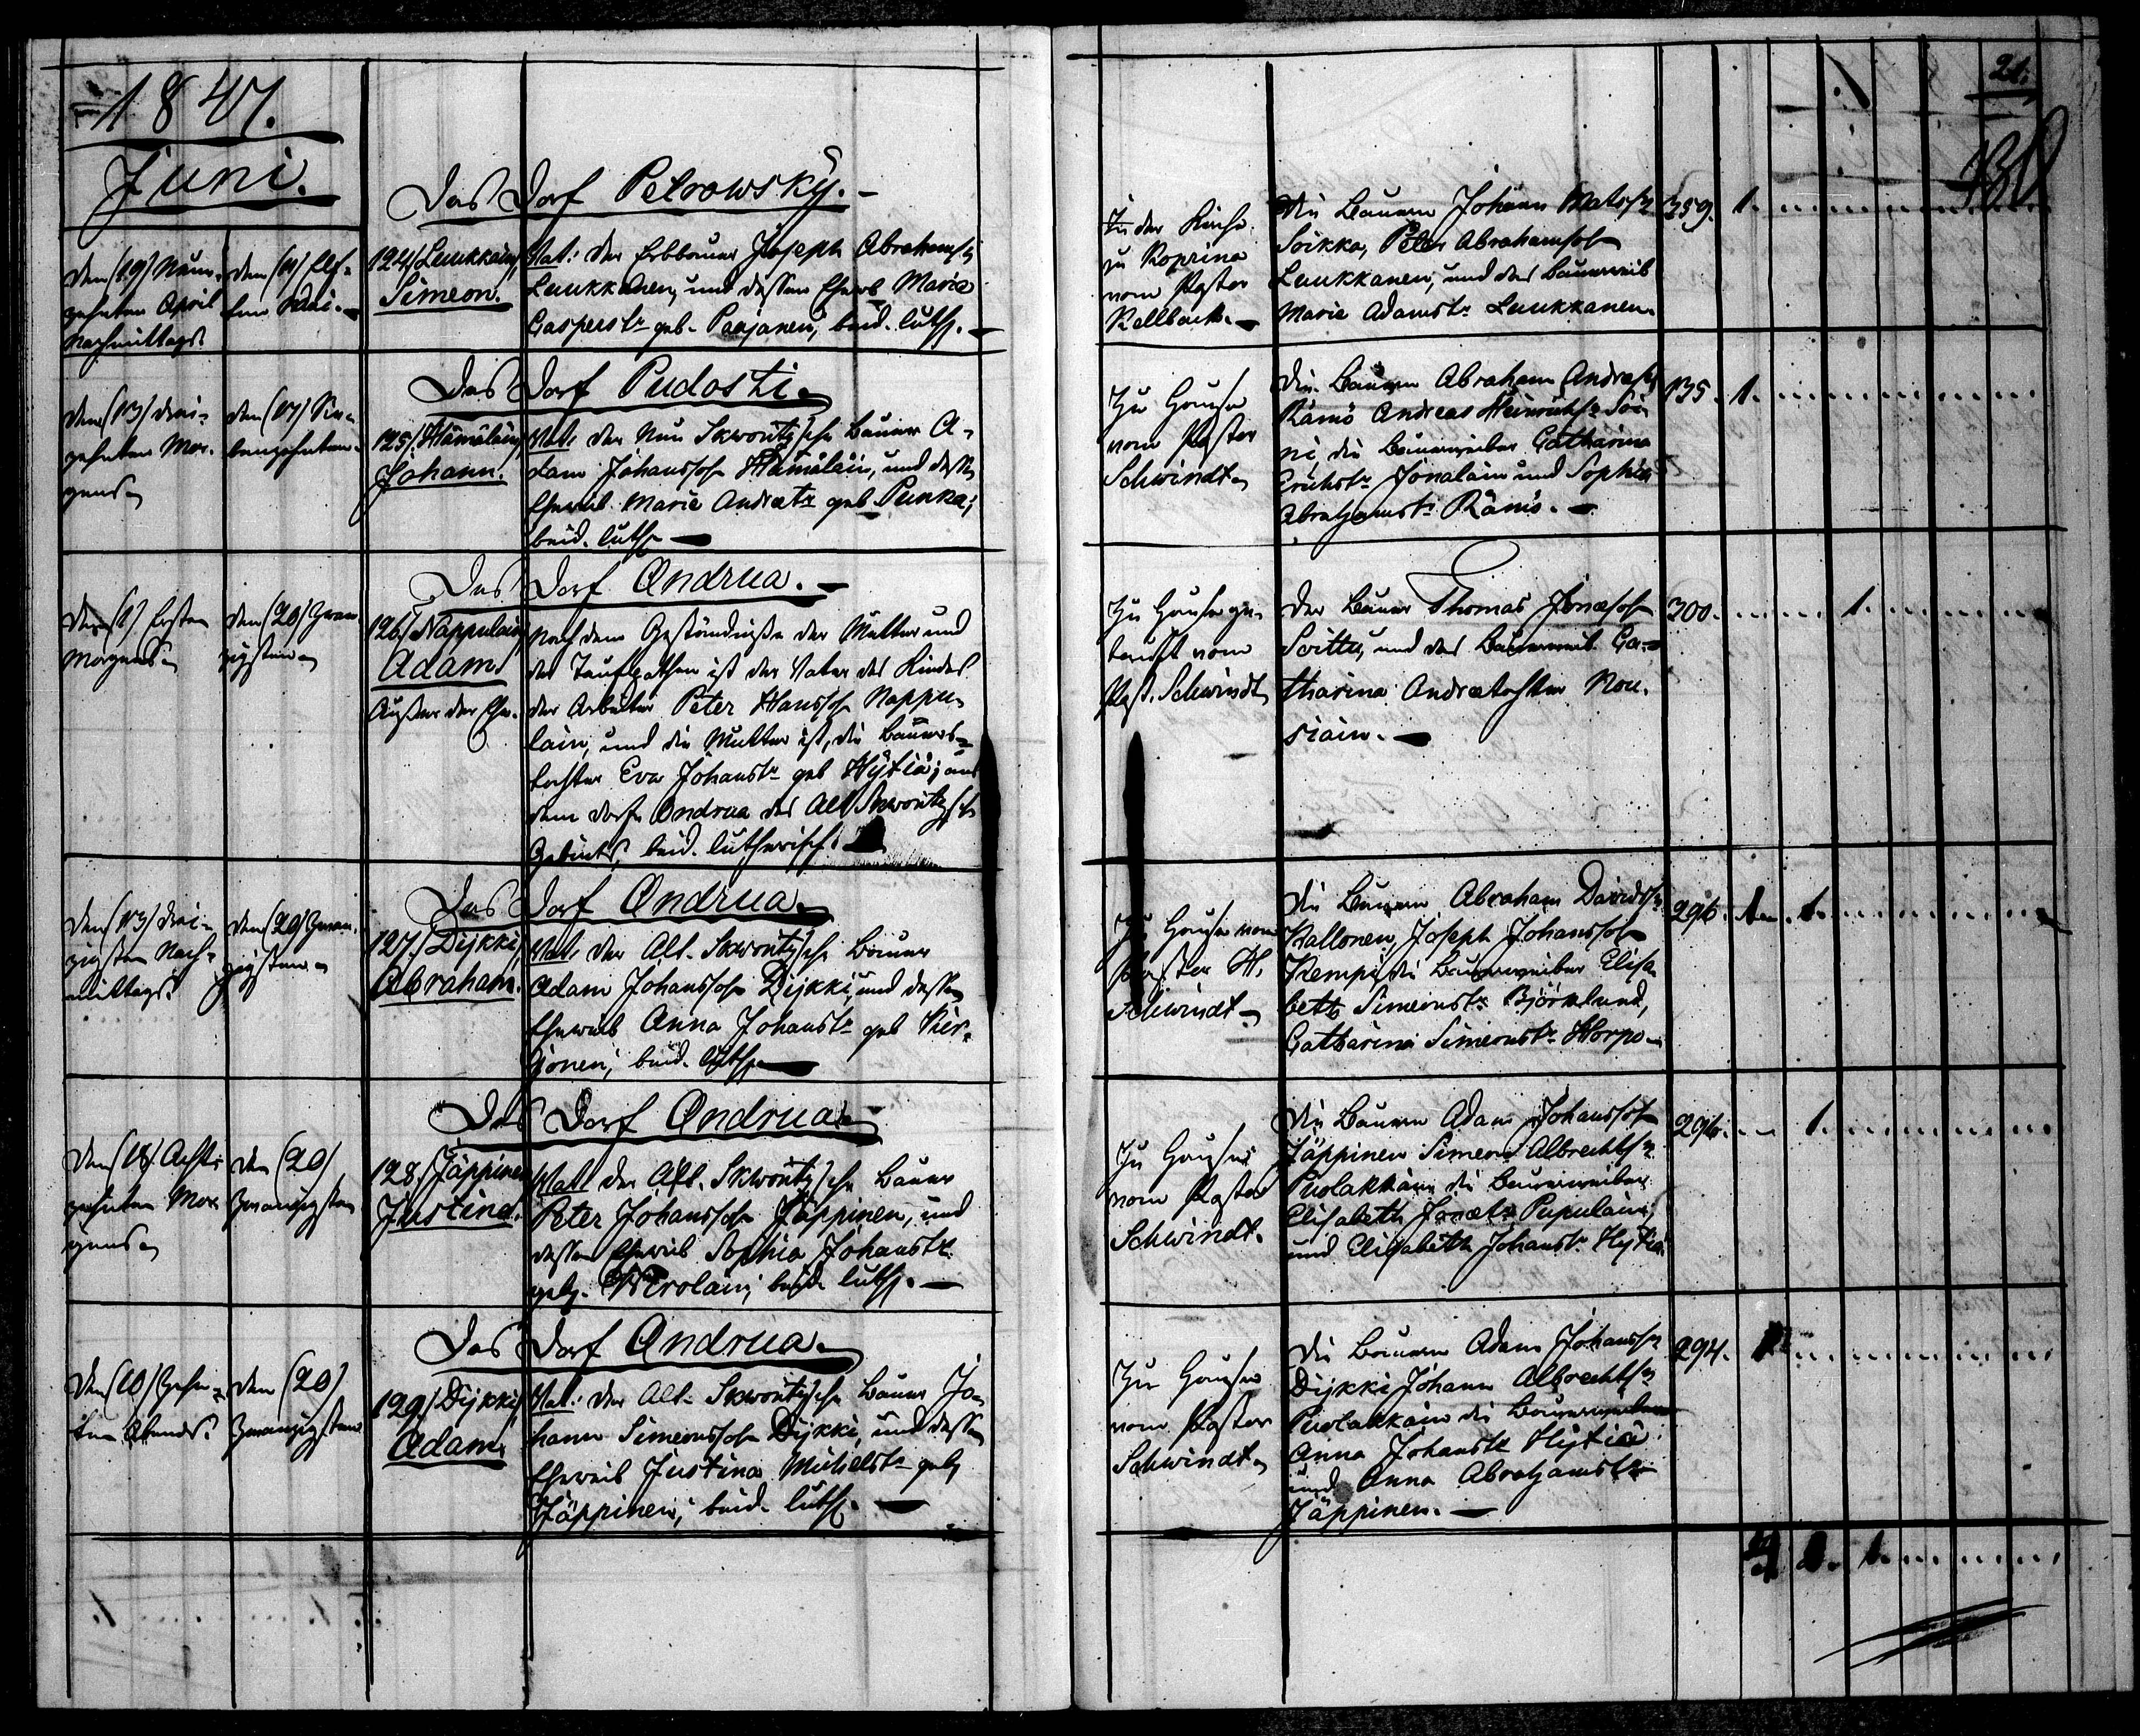 1847.
Juni.
Das Dorf Petrowsky.
den (19) Neun-
zehnten April
Nachmittags
den (11) Elf-
ten Mai.
124/ Luukkain,
Simeon.
Vat: der Erbbauer Joseph Abrahams
Luukkanen, und dessen Eheweib Maria
Casperstr geb. Paajanen, beid. luth.
In der Kirche
zu Koprina
vom Pastor
Kellback.
Die Bauern Johann Matss
Soikka, Peter Abrahamsoh
Luukkanen, und das Bauerweib
Marie Adamstr Luukkanen.
359. 1.
21.
Das Dorf Pudosti.
den (13) drei-
zehnten Mor-
gens
den (17) Sie-
benzehnten
125/ Hämäläin,
Johann.
Vat. der Neu Skworitzsche Bauer A-
dam Johanssoh Hämäläin, und dessen
Eheweib Marie Andrestr geb Punka;
beid. luth
Zu Hause
vom Pastor
Schwindt
Die Bauern Abraham Andress
Rämö Andreas Heinrichs Soi-
ni die Bauerweiber Catharina
Erichstr Jonalain und Sophia
Abrahamstr Rämö.
135. 1.
Das Dorf Andrua.
den (1) Ersten
Morgens
den (20) Zwan-
zigsten
126/ Nappulain,
Adam.
Außer der Ehe.
Nach dem Geständniße der Mutter und
der Taufpathen ist der Vater des Kindes
der Arbeiter Peter Hanssoh Nappu-
lain, und die Mutter ist, die Bauers-
tochter Eva Johanstr geb Hÿtiä; aus
dem Dorfe Andrua des Alt Skworitzsch
Gebiets, beid. lutherisch.
Zu Hause ge-
tauft vom
Past. Schwindt
Der Bauer Thomas Jonassoh
Soittu, und das Bauerweib Ca-
tharina Andretochter Nou-
siain.
300. 1.
Das Dorf Andrua.
den (13) drei-
zigsten Nach-
mittags
den (20) Zwan-
zigsten
127./ Dijkki,
Abraham.
Vat. der Alt. Skworitzsche Bauer
Adam Johanssoh Dijkki, und dessen
Eheweib Anna Johanstr geb Kier-
jonen, beid. luth.
Zu Hause vom
Pastor H.
Schwindt
Die Bauern Abraham Davids
Kallonen, Joseph Johanssoh
Kempi die Bauerweiber Elisa
beth Simeonstr Björklund,
Catharina Simeonstr Horpo
296. 1.
Das Dorf Andrua
den (18) Acht-
zehnten Mor-
gens
den (20)
Zwanzigsten
128/ Jäppinen
Justina.
Vat. der Alt. Skworitzsche Bauer
Peter Johanssoh Jäppinen, und
dessen Eheweib Sophia Johanstr.
geb. Wirolain; beid. luth.
Zu Hause
vom Pastor
Schwindt.
Die Bauern Adam Johanssoh
Jäppinen Simeon Albrechts
Puolakkain die Bauerweiber
Elisabeth Jonatr Pupulain;
und Elisabeth Johanstr Hÿtiä
296. 1.
Das Dorf Andrua.
den (10) Zehn-
ten Abends.
den (20)
Zwanzigsten
129/ Dijkki,
Adam.
Vat: der Alt- Skworitzsche Bauer Jo-
hann Simeonssoh Dijkki, und dessen
Eheweib Justina Michelstr geb
Jäppinen, beid. luth.
Zu Hause
vom Pastor
Schwindt
Die Bauern Adam Johanss
Dijkki Johann Albrechts
Puolakkain die Bauerweiber
Anna Johanstr Hÿtiä
und Anna Abrahamstr
Jäppinen.
294.
1.